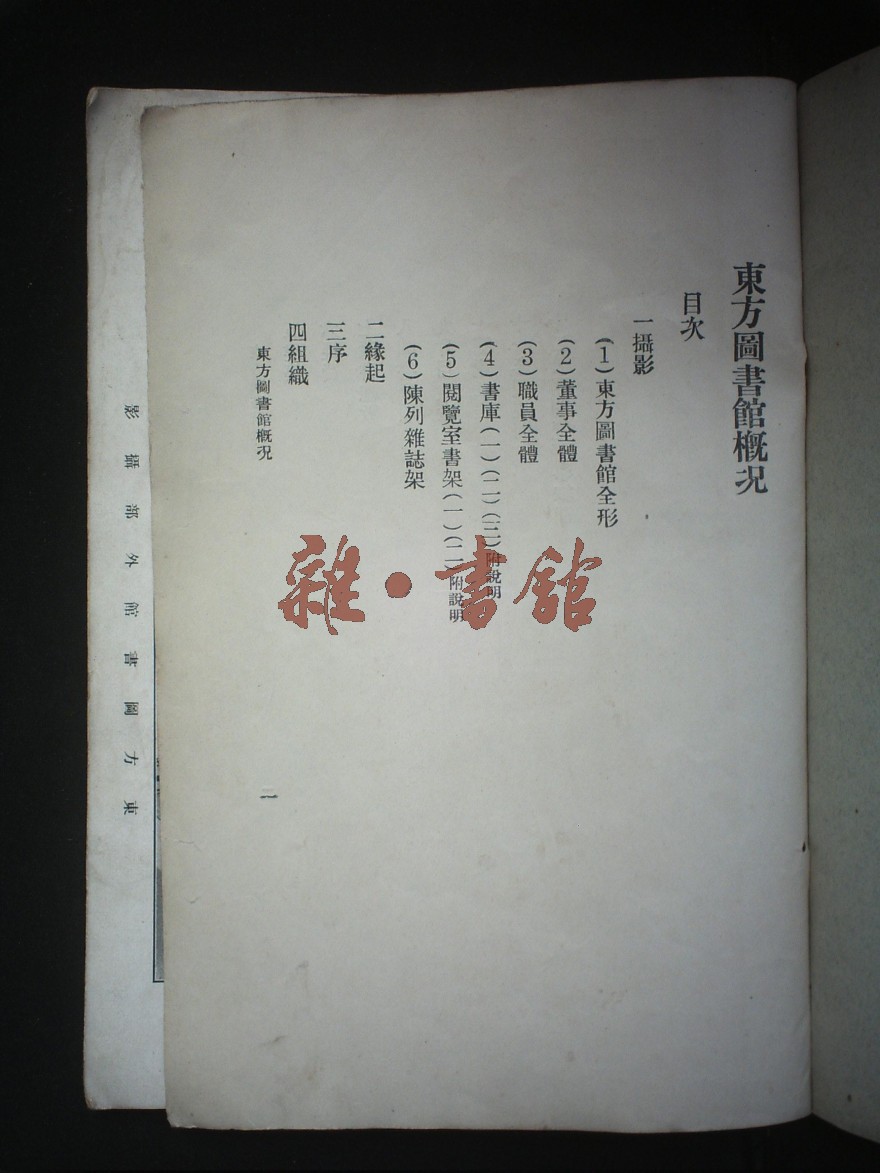 東方圖書館概況
目次
一攝影
(1)東方圖書館全形
(2)董事全體
(3)職員全體
(4)書庫(一)(二)(三)附說明
(5)閱覽室書架(一)(二)附說明
(6)陳列雜誌架
二緣起
三序
四組織
東方圖書館概況
二
東方圖書館外部攝影
雜·書館